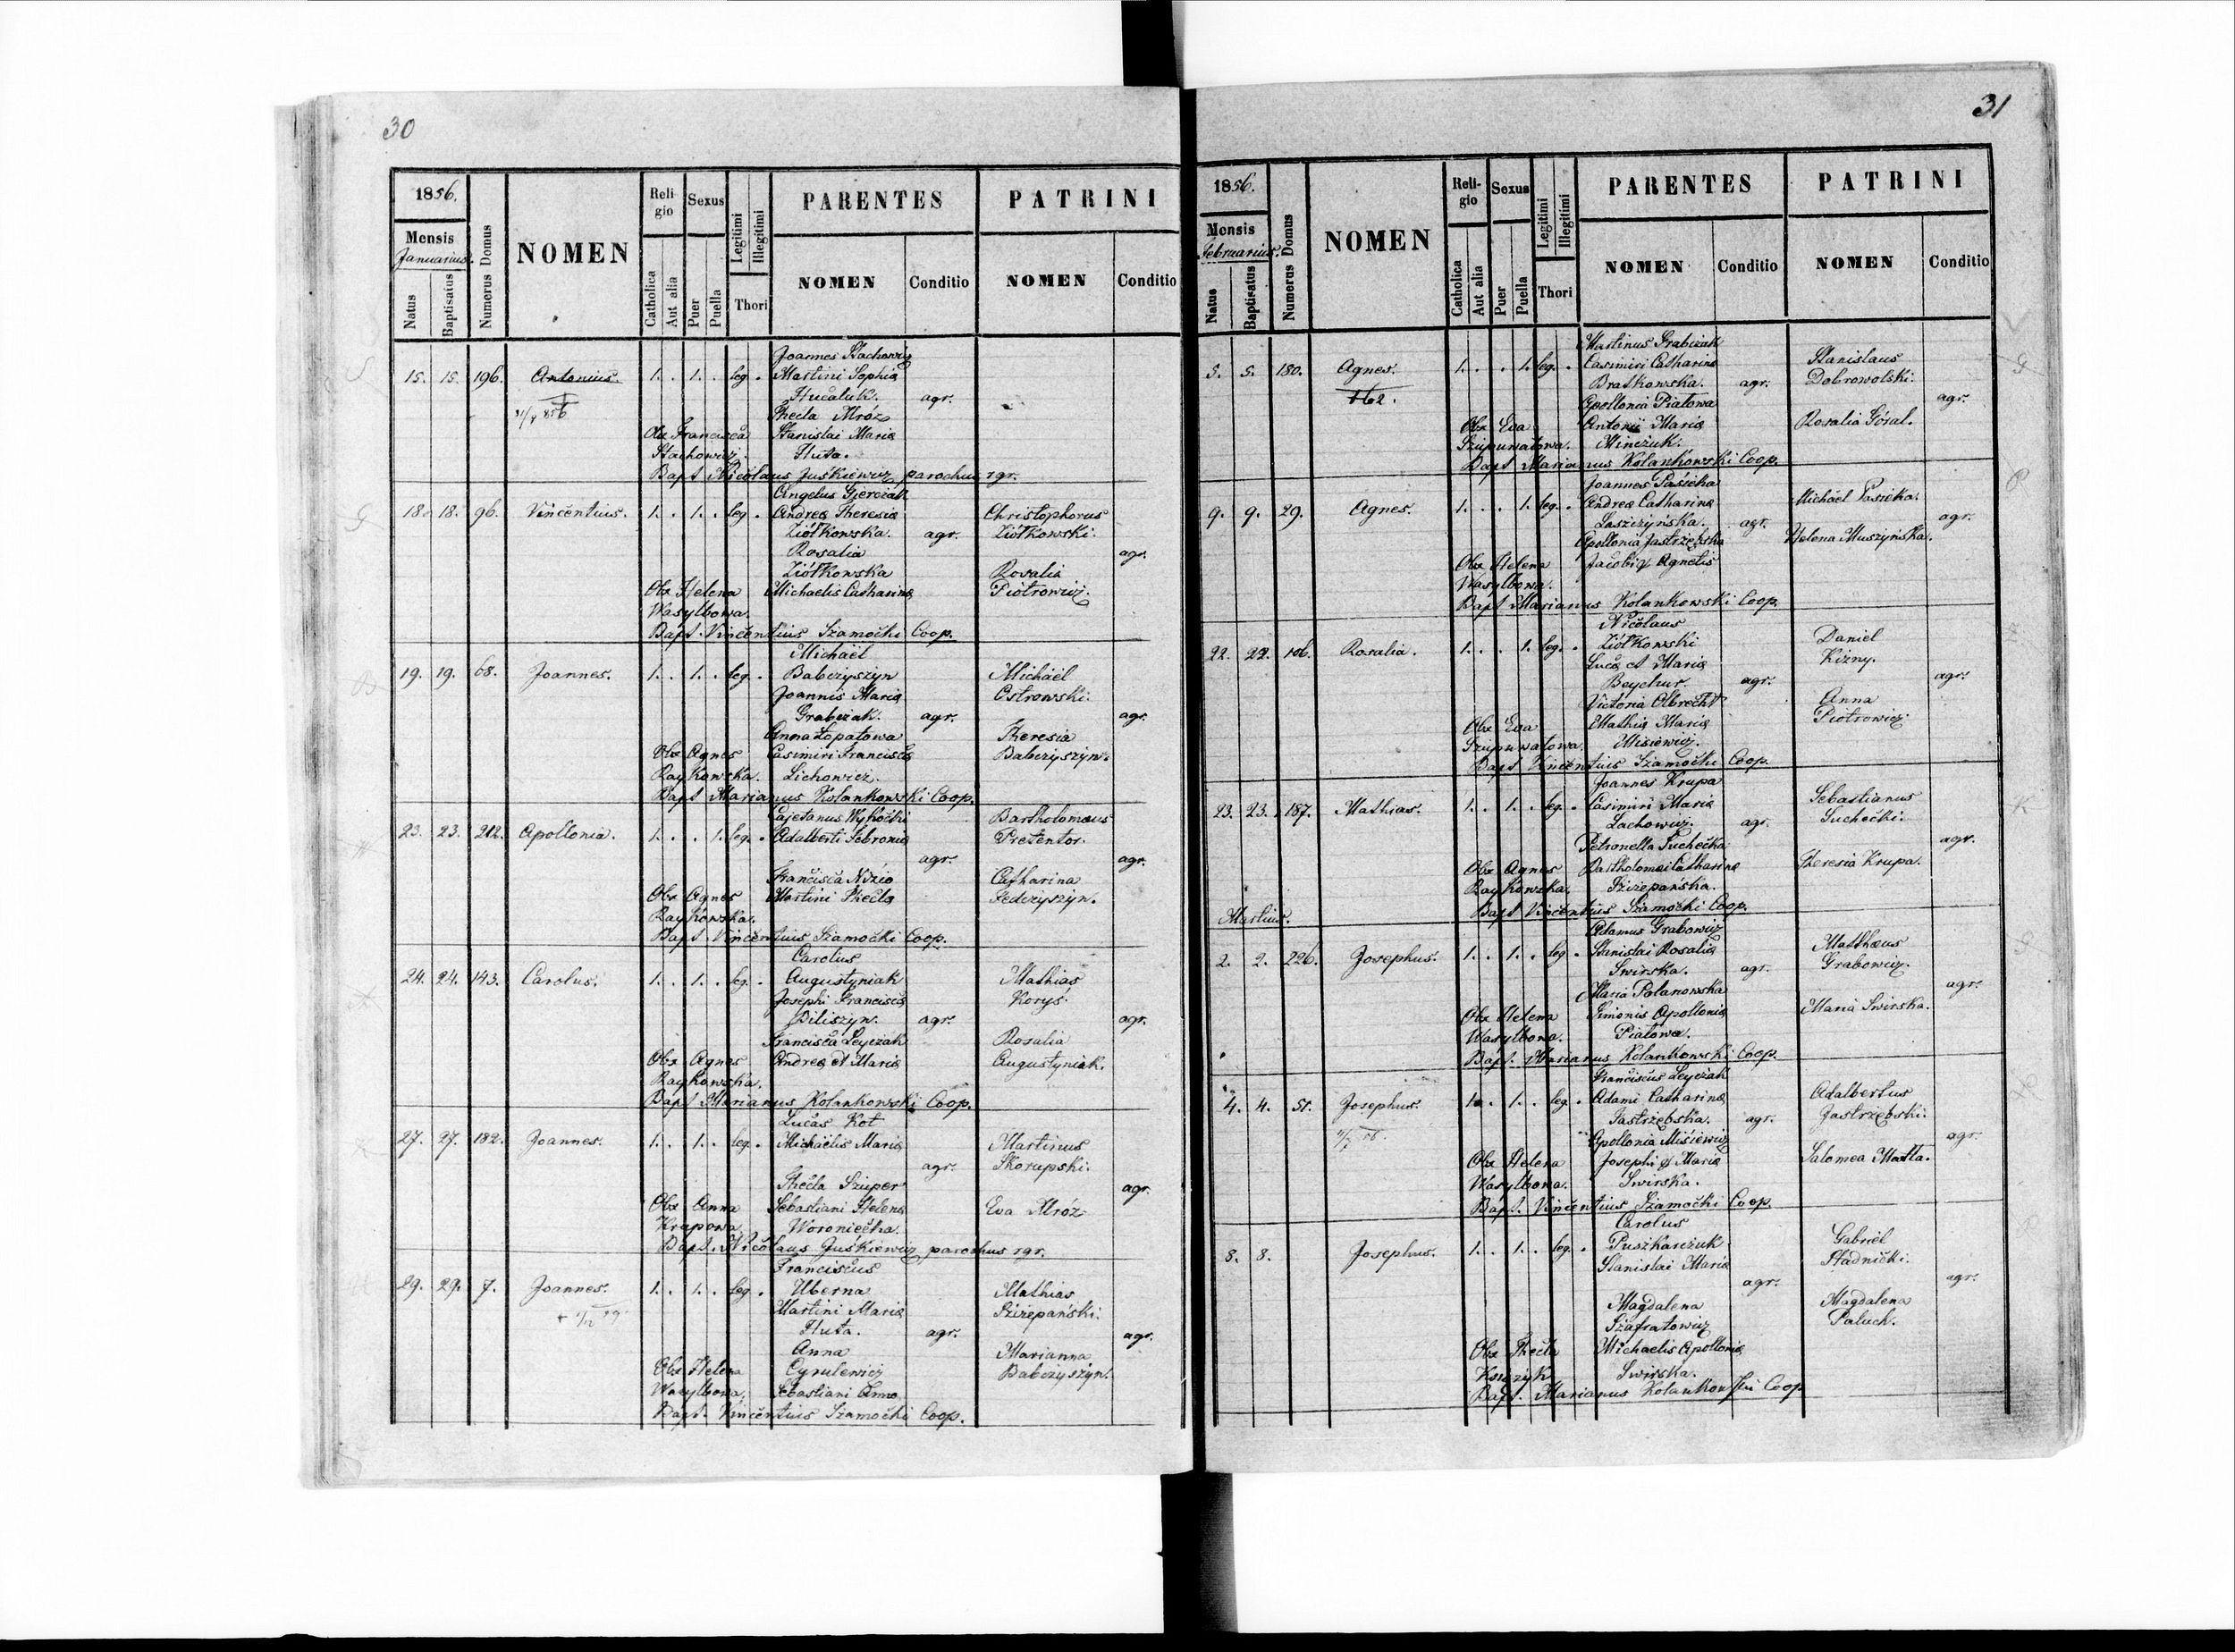 30
1856.
Mensis
Januarius.
Natus
Baptisatus
Numerus Domus
NOMEN
Religio
Catholica
Aut alia
Sexus
Puer
Puella
Legitimi
Illegitimi
Thori
PARENTES
NOMEN
Conditio
PATRINI
NOMEN
Conditio
Joannes Stachowicz
15. 15. 196. Antonius. 1. . 1. . leg. . Martini Sophia
Huculuk. agr.
Thecla Mróz
Obx Francisca Stanislai Maria
Stachowicz. Huta.
Bapt Nicolaus Juśkiewicz parochus rgr.
Angelus Gierczak
18. 18. 96. Vincentius. 1. . 1. . leg. . Andrea Theresia Christophorus
Ziółkowska. agr. Ziółkowski.
Rosalia agr.
Ziółkowska Rosalia
Obx Helena Michaelis Catharina Piotrowicz.
Wasylkowa.
Bapt. Vincentius Szamocki Coop.
Michaël
19. 19. 68. Joannes. 1. . 1. . leg. . Babczyszyn Michaël
Joannis Maria Ostrowski.
Grabczak. agr. agr.
Anna Łopatowa Theresia
Obx Agnes Casimiri Francisca Babczyszyn.
Raykowska. Lichowicz.
Bapt Marianus Kolankowski Coop.
Cajetanus Wysocki Bartholomæus
23. 23. 212. Apollonia. 1. . . 1. leg. . Adalberti Sebronia Pretentor.
agr. agr.
Francisca Nizio Catharina
Obx Agnes Martini Thecla Fedczyszyn.
Raykowska.
Bapt. Vincentius Szamocki Coop.
Carolus
24. 24. 143. Carolus. 1. . 1. . leg. . Augustyniak Mathias
Josephi Francisca Koryś
Biliszyn. agr. agr.
Francisca Leyczak Rosalia
Obx Agnes Andrea et Maria Augustyniak.
Raykowska.
Bapt Marianus Kolankowski Coop.
Lucas Kot
27. 27. 182. Joannes. 1. . 1. . leg. . Michaëlis Maria Martinus
agr. Skorupski.
Thecla Szuper agr.
Obx Anna Sebastiani Helena Eva Mróz
Krapowa Woroniecka.
Bapt. Nicolaus Juśkiewicz parochus rgr.
Franciscus
29. 29. 7. Joannes. 1. . 1. . leg. . Uberna Mathias
Martini Maria Szczepański.
Huta. agr. agr.
Anna Marianna
Obx Helena Cyrulewicz Babczyszyn.
Wasylkowa. Sebastiani Anna
Bapt. Vincentius Szamocki Coop.
31
1856.
Mensis
Februarius.
Natus
Baptisatus
Numerus Domus
NOMEN
Religio
Catholica
Aut alia
Sexus
Puer
Puella
Legitimi
Illegitimi
Thori
PARENTES
NOMEN
Conditio
PATRINI
NOMEN
Conditio
Martinus Grabczak
5. 5. 180. Agnes. 1. . . 1. leg. . Casimiri Catharina Stanislaus
Bratkowska. agr. Dobrowolski.
Apollonia Piatowa agr.
Obx Eva Antonii Maria Rosalia Góral.
Szupuwatowa. Minczuk.
Bapt Marianus Kolankowski Coop.
Joannes Pasieka
9. 9. 29. Agnes. 1. . . 1. leg. . Andrea Catharina Michaël Pasieka.
Laszczyńska. agr. agr.
Apollonia Jastrzębska Helena Muszyńska.
Obx Helena Jacobi et Agnetis
Wasylkowa.
Bapt Marianus Kolankowski Coop.
Nicolaus
22. 22. 106. Rosalia. 1. . . 1. leg. . Ziółkowski Daniel
Luca et Maria Kizny.
Beychur. agr. agr.
Victoria Olbrecht Anna
Obx Eva Mathia Maria Piotrowicz.
Szupuwatowa. Misiewicz.
Bapt Vincentius Szamocki Coop.
Joannes Krupa
23. 23. 187. Mathias. 1. . 1. . leg. . Casimiri Maria Sebastianus
Lachowicz. agr. Suchecki.
Petronella Suchecka agr.
Obx Agnes Bartholomæi Catharina Theresia Krupa.
Raykowska. Szczepańska.
Bapt Vincentius Szamocki Coop.
Martius.
Adamus Grabowicz
2. 2. 226. Josephus. 1. . 1. . leg. . Stanislai Rosalia Matthæus
Swirska. agr. Grabowicz.
Maria Polanowska agr.
Obx Helena Simonis Apollonia Maria Swirska.
Wasylkowa. Piatowa.
Bapt. Marianus Kolankowski Coop.
Franciscus Leyczak
4. 4. 51. Josephus. 1. . 1. . leg. . Adami Catharina Adalbertus
Jastrzębska. agr. Jastrzębski.
Apollonia Misiewicz agr.
Obx Helena Josephi et Maria Salomea Matla.
Wasylkowa. Swirska.
Bapt. Vincentius Szamocki Coop.
Carolus
8. 8. Josephus. 1. . 1. . leg. . Puszkarczuk Gabriël
Stanislai Maria Stadnicki.
agr. agr.
Magdalena Magdalena
Szafratowicz Paluch.
Obx Thecla Michaelis Apollonia
Księżyk Swirska.
Bapt. Marianus Kolankowski Coop.